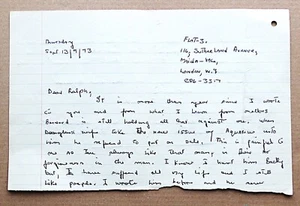 Thursday
Sept 13/9/73
Flat 5.
116, Sutherland Avenue,
Maida Vale,
London, W.9.
286-3317
Dear Ralph,
It is more than a year since I wrote
to you and from what I hear from mothers
Bernard is still holding all that against me, when
wrote like the same issue of Aquarius with
him he refused to put on sale. This is painful to
me as I've always liked that man, is there no
forgiveness in the man. I know I have been
but I have suffered all my life and I still
like people. I wrote him before and he never